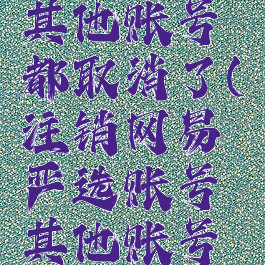 其他账号
都取消了(
注销网易
严选账号
其他账号